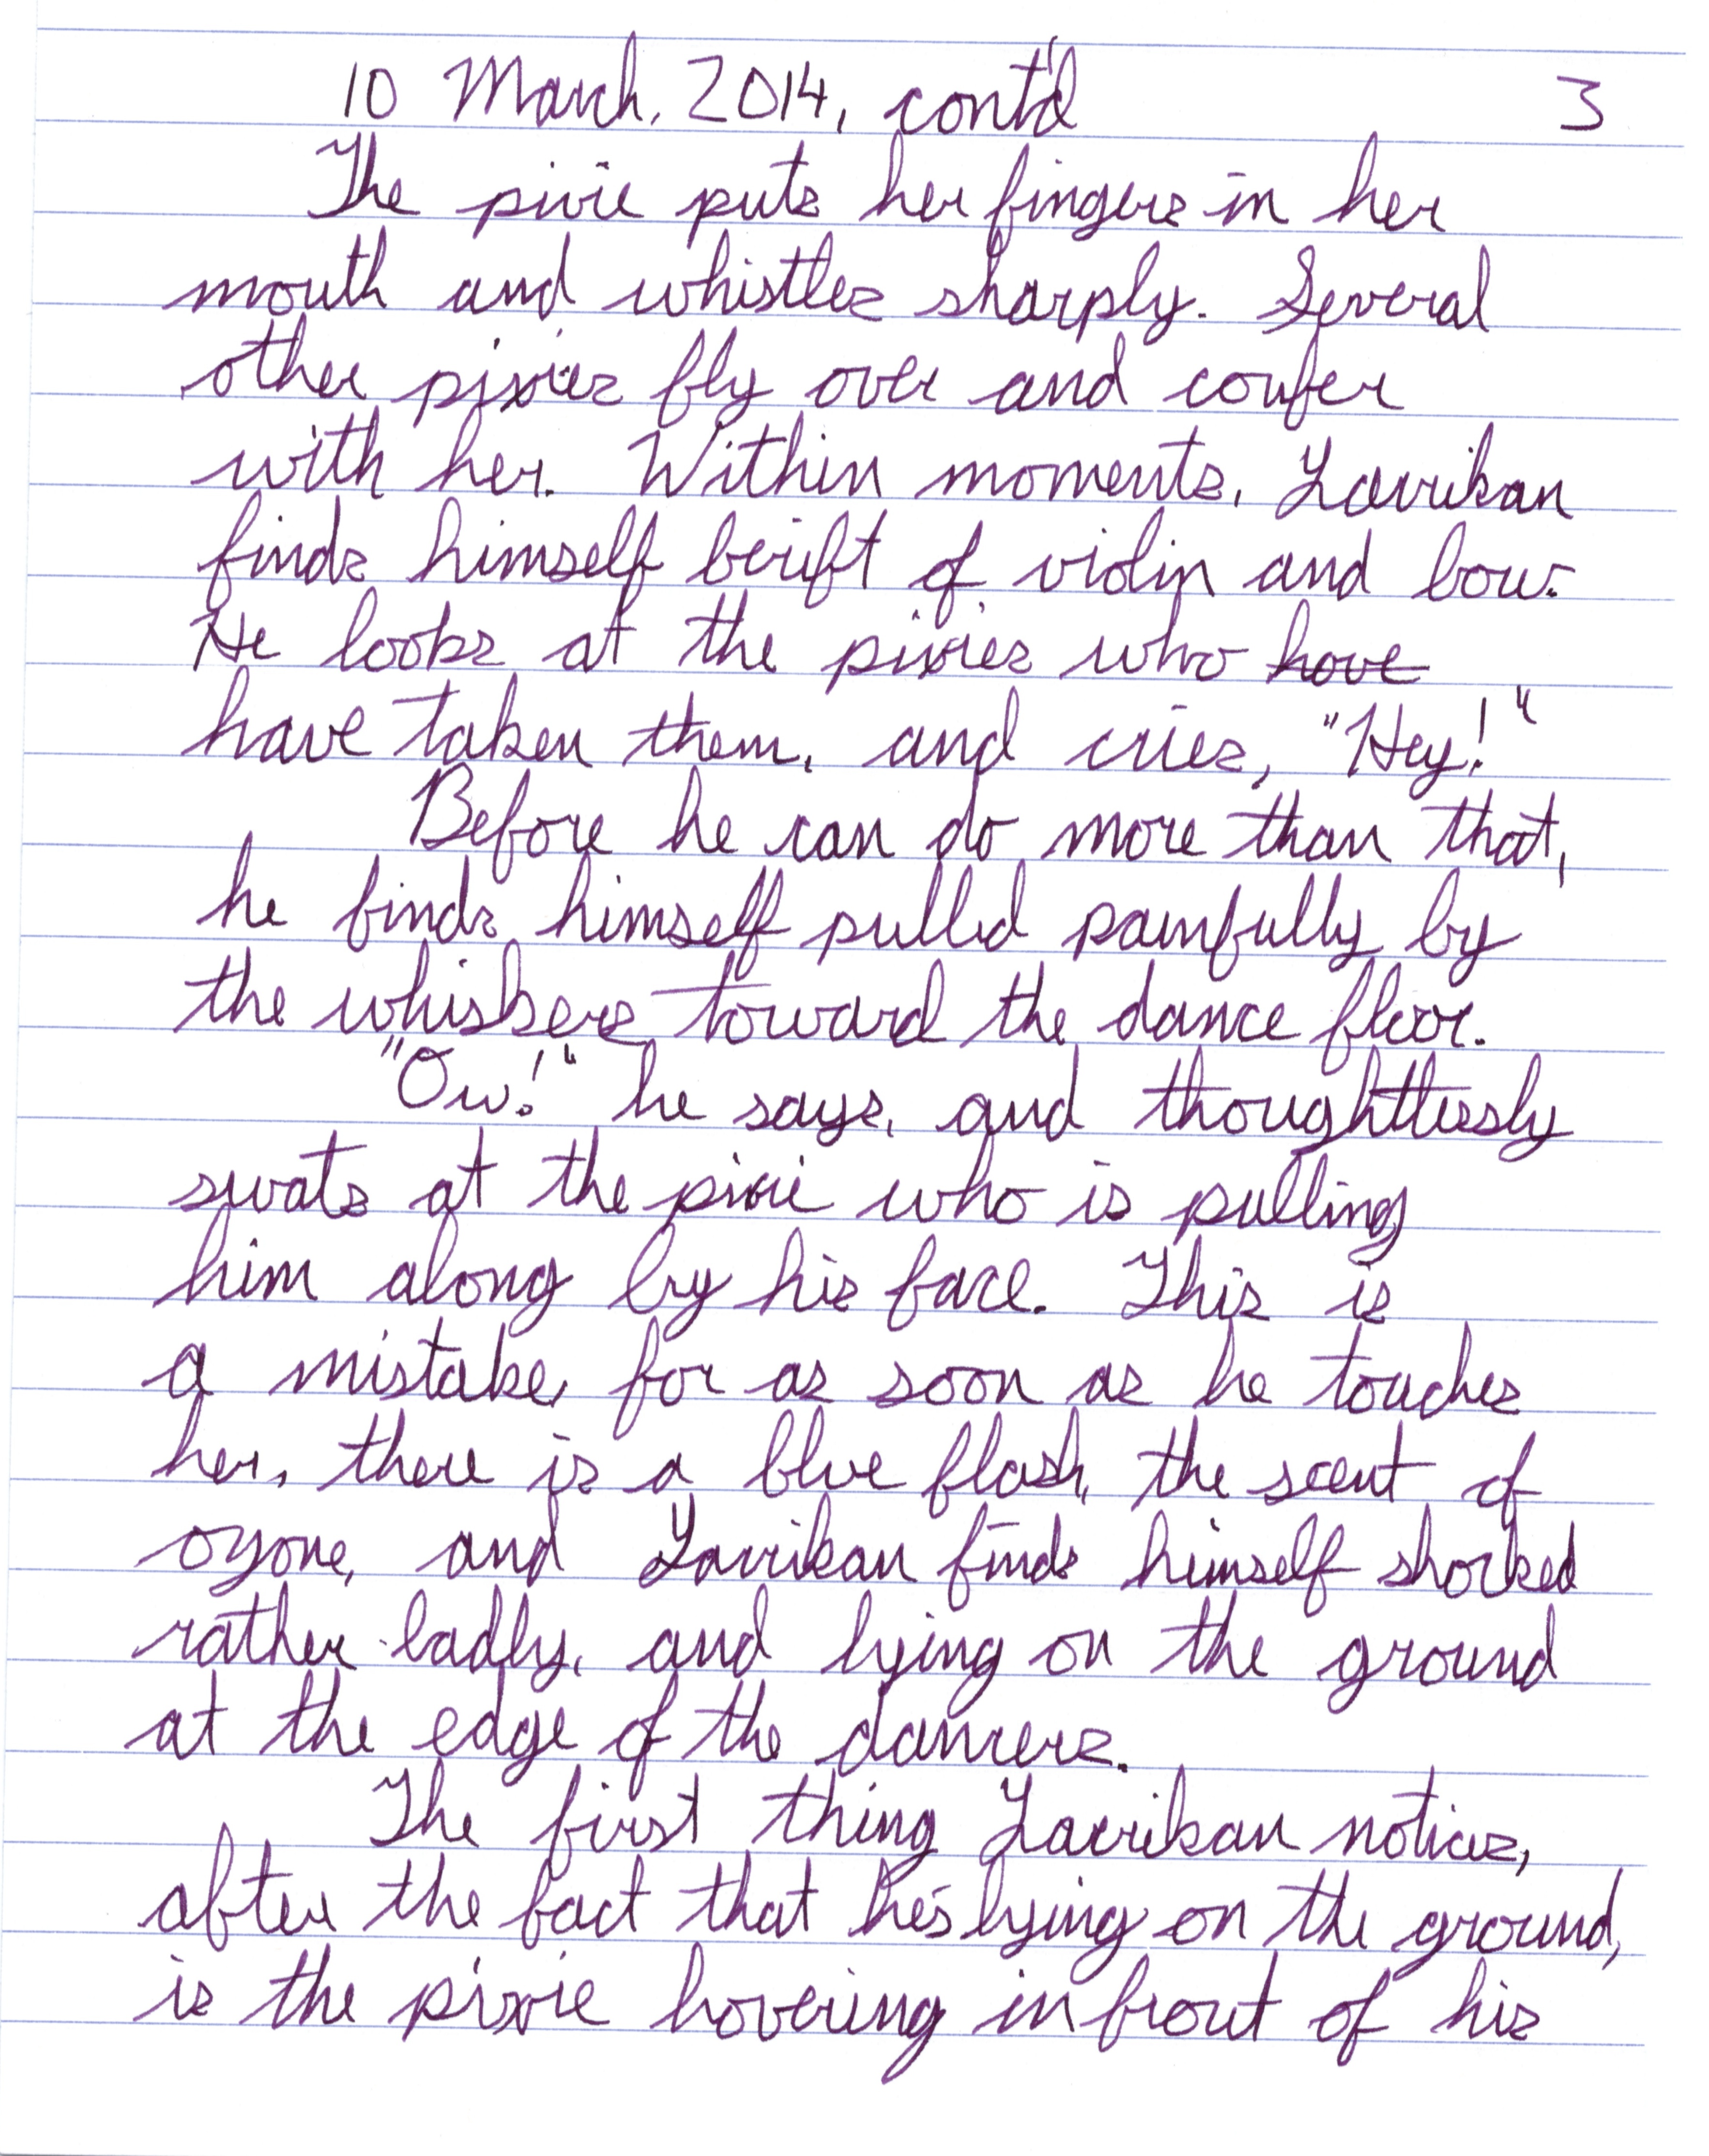 10 March, 2014, cont'd 3
The pixie puts her fingers in her
mouth and whistles sharply. Several
other pixies fly over and confer
with her. Within moments, Larrikan
finds himself bereft of violin and bow.
He looks at the pixies who have
have taken them, and cries, "Hey!"
Before he can do more than that,
he finds himself pulled painfully by
the whiskers toward the dance floor.
"Ow!" he says, and thoughtlessly
swats at the pixie who is pulling
him along by his face. This is
a mistake, for as soon as he touches
her, there is a blue flash, the scent of
ozone, and Larrikan finds himself shocked
rather badly, and lying on the ground
at the edge of the dancers.
The first thing Larrikan notices,
after the fact that he's lying on the ground,
is the pixie hovering in front of his